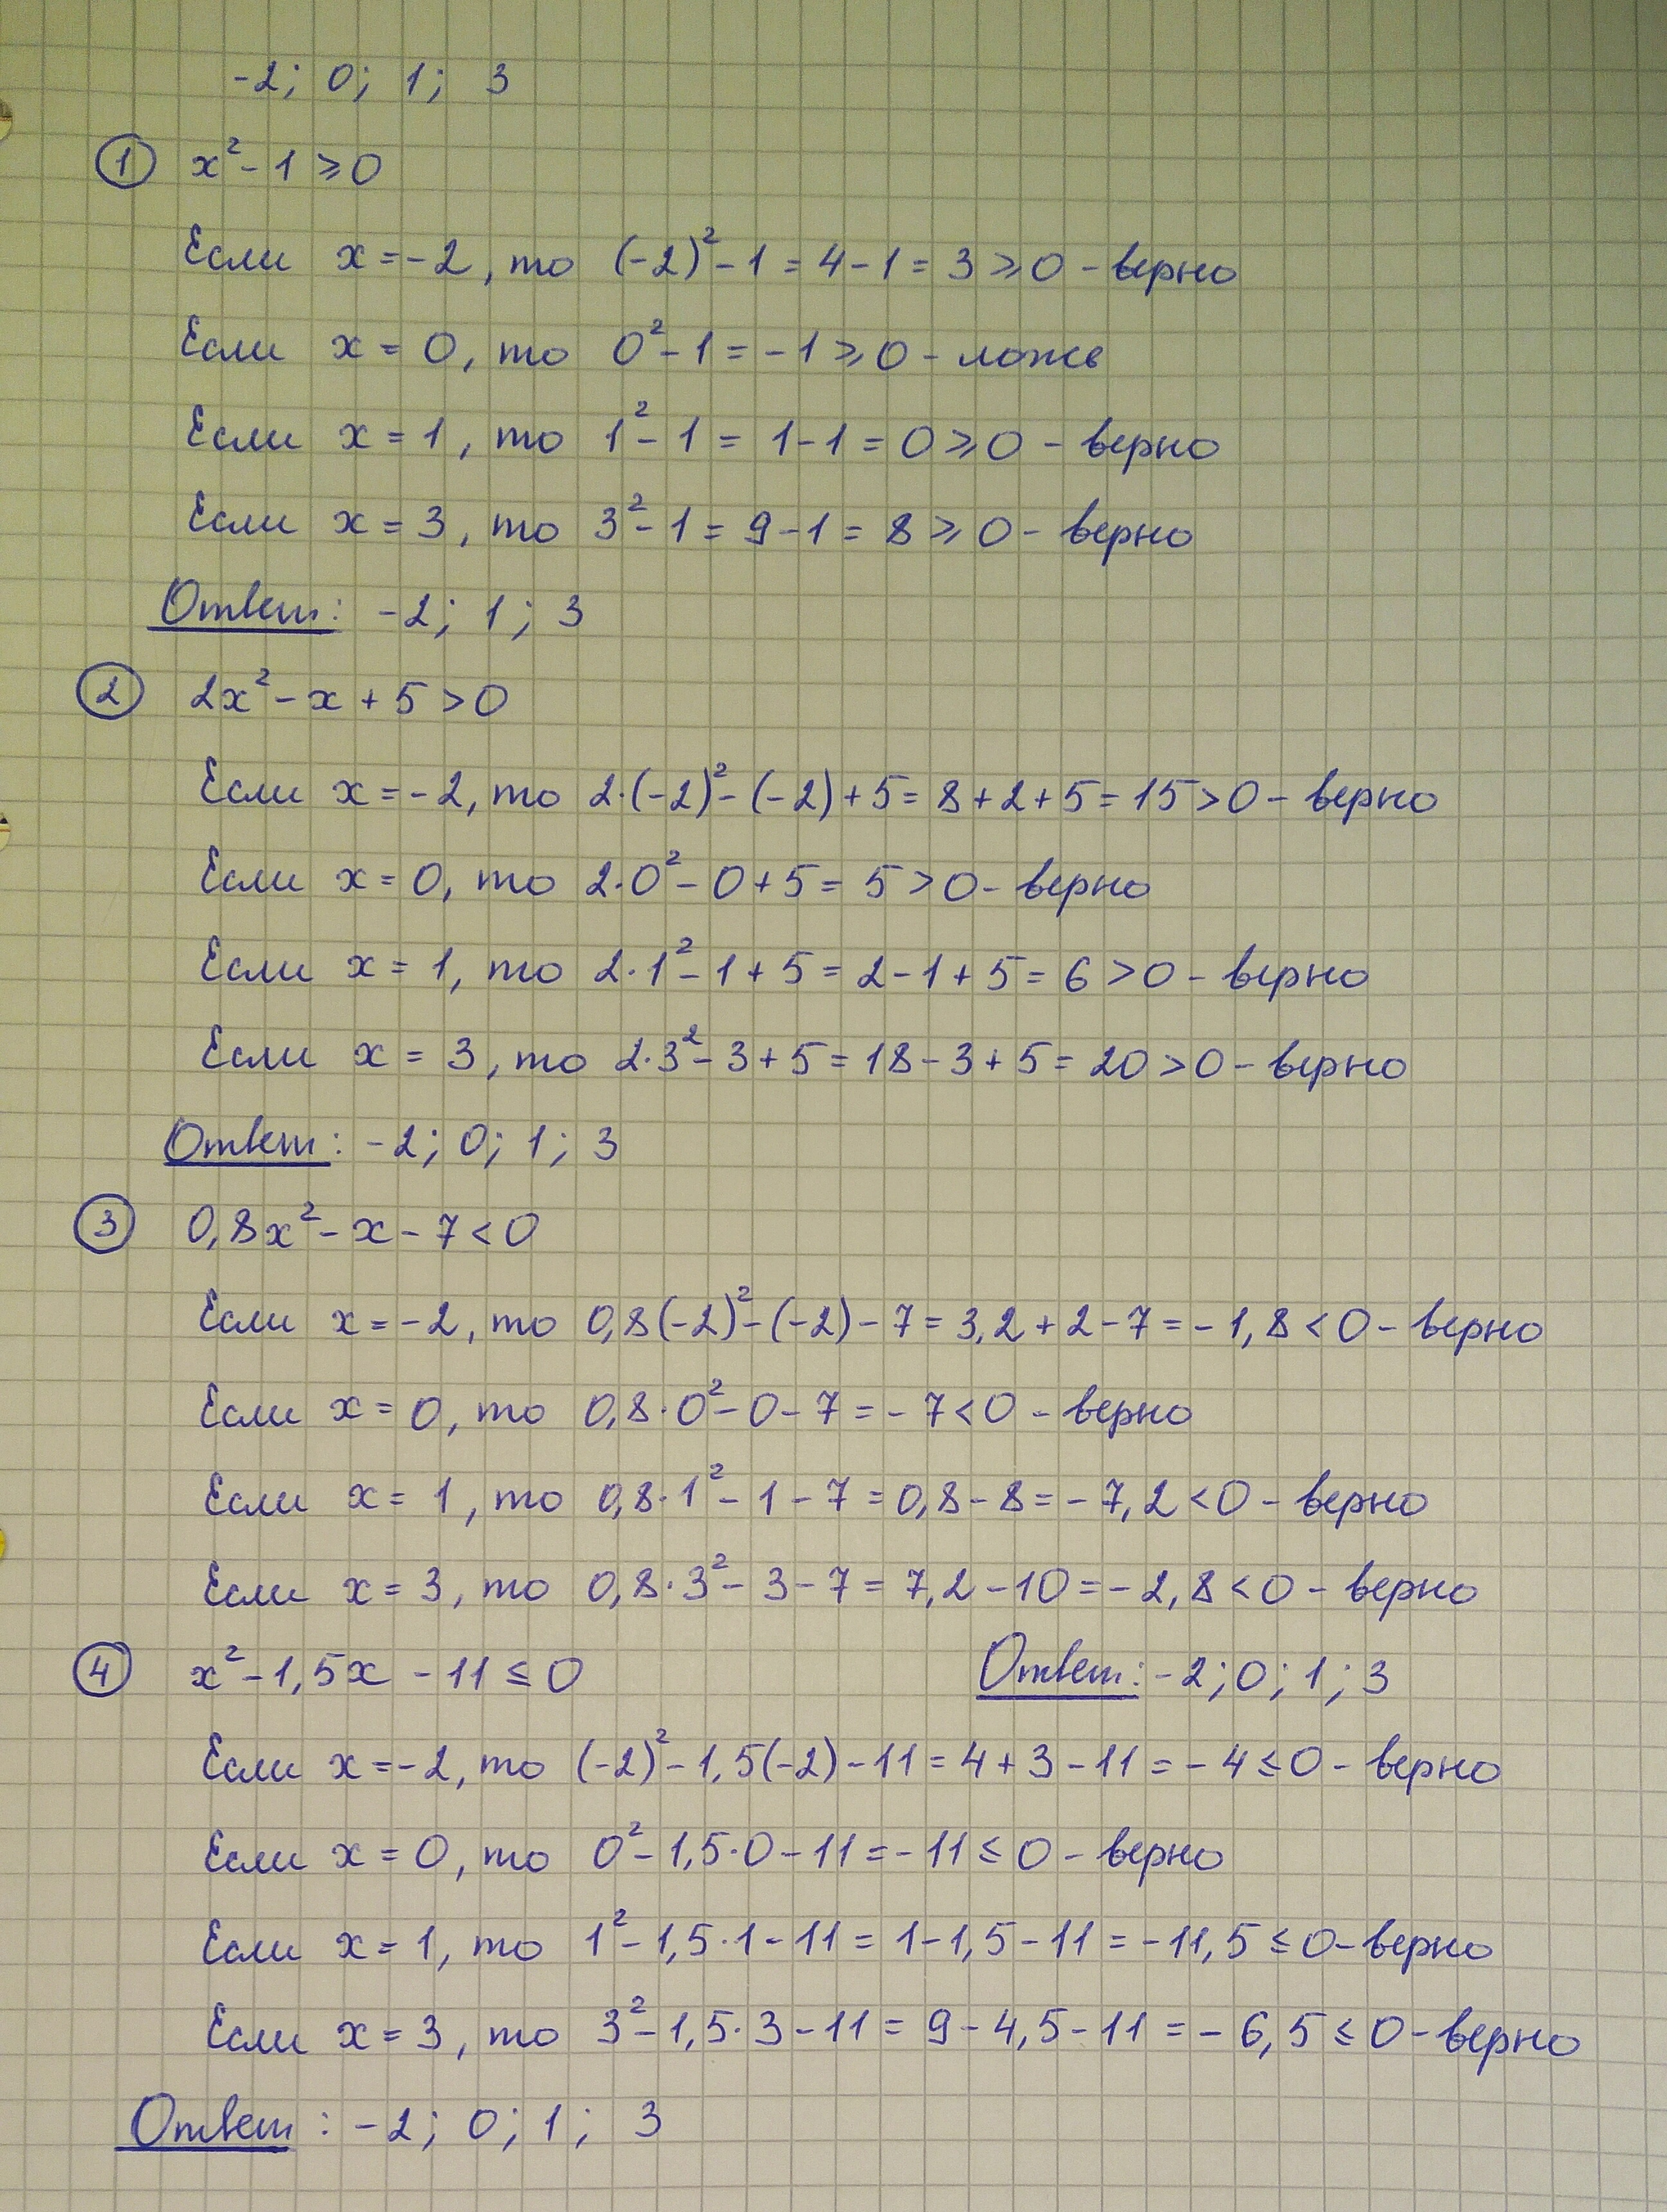 -2; 0; 1; 3
① x² - 1 ≥ 0
Если x = -2, то (-2)² - 1 = 4 - 1 = 3 ≥ 0 - верно
Если x = 0, то 0² - 1 = -1 ≥ 0 - ложь
Если x = 1, то 1² - 1 = 1 - 1 = 0 ≥ 0 - верно
Если x = 3, то 3² - 1 = 9 - 1 = 8 ≥ 0 - верно
Ответ: -2; 1; 3
② 2x² - x + 5 > 0
Если x = -2, то 2·(-2)² - (-2) + 5 = 8 + 2 + 5 = 15 > 0 - верно
Если x = 0, то 2·0² - 0 + 5 = 5 > 0 - верно
Если x = 1, то 2·1² - 1 + 5 = 2 - 1 + 5 = 6 > 0 - верно
Если x = 3, то 2·3² - 3 + 5 = 18 - 3 + 5 = 20 > 0 - верно
Ответ: -2; 0; 1; 3
③ 0,8x² - x - 7 < 0
Если x = -2, то 0,8(-2)² - (-2) - 7 = 3,2 + 2 - 7 = -1,8 < 0 - верно
Если x = 0, то 0,8·0² - 0 - 7 = -7 < 0 - верно
Если x = 1, то 0,8·1² - 1 - 7 = 0,8 - 8 = -7,2 < 0 - верно
Если x = 3, то 0,8·3² - 3 - 7 = 7,2 - 10 = -2,8 < 0 - верно
Ответ: -2; 0; 1; 3
④ x² - 1,5x - 11 ≤ 0
Если x = -2, то (-2)² - 1,5(-2) - 11 = 4 + 3 - 11 = -4 ≤ 0 - верно
Если x = 0, то 0² - 1,5·0 - 11 = -11 ≤ 0 - верно
Если x = 1, то 1² - 1,5·1 - 11 = 1 - 1,5 - 11 = -11,5 ≤ 0 - верно
Если x = 3, то 3² - 1,5·3 - 11 = 9 - 4,5 - 11 = -6,5 ≤ 0 - верно
Ответ: -2; 0; 1; 3